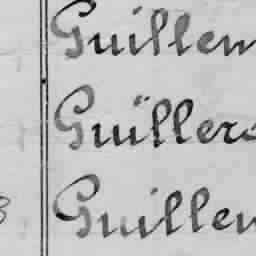 Guillem
Guillers
Guillem